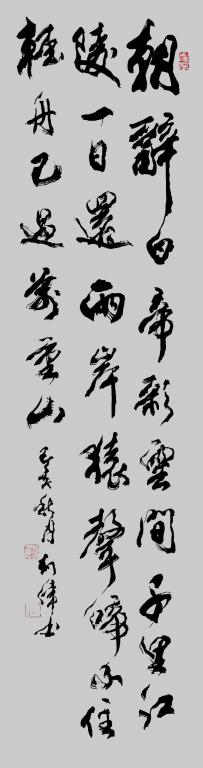 朝辭白帝彩雲間千里江
陵一日還兩岸猿聲啼不住
輕舟已過萬重山
己亥秋月